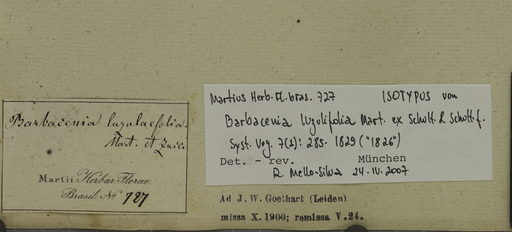 Barbacenia luzulaefolia
Mart. et Zucc.
Martii Herbar. Florae
Brasil. No 727
Martius Herb. Fl. bras. 727 ISOTYPUS von
Barbacenia luzulifolia Mart. ex Schult. & Schult. f.
Syst. Veg. 7(1): 285. 1829 ("1826")
Det. - rev. München
R. Mello-Silva 24.IV.2007
Ad J. W. Goethart (Leiden)
missa X.1900; remissa V.24.